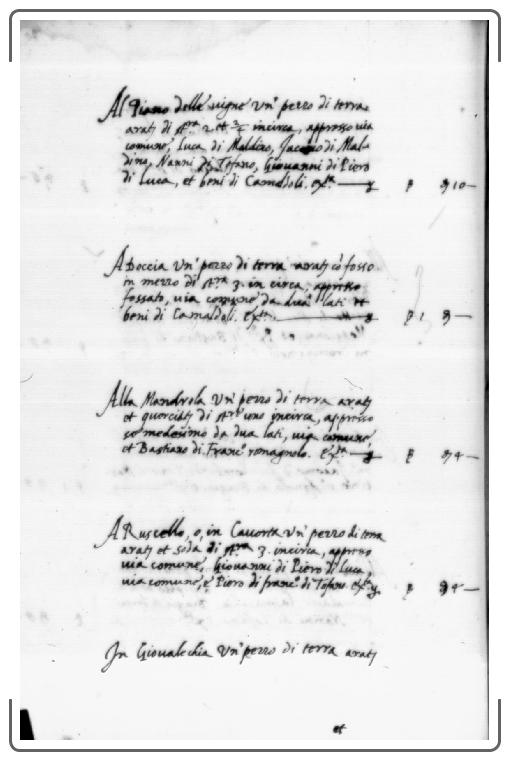 Al Piano delle vigne Un' pezzo di terra
arati di st.ra 2 et 3/4 incirca, appresso via
comune, Luca di Maldino, Jacopo di Mal-
dino, Nanni di Tofano, Giovanni di Piero
di Luca, et beni di Camaldoli. 10—
A Doccia Un' pezzo di terra arati cō fosso
in mezzo di st.ra 3. in circa, appresso
fossato, via comune da dua lati et
beni di Camaldoli. 1
Alla Mandrola Un' pezzo di terra arati
et querciati di st.ro uno incirca, appresso
se medesimo da dua lati, via comune,
et Bastiano di Franc.o romagnolo. 4—
A Ruscello, o, in Cavorta Un' pezzo di terra
arati et soda di st.ra 3. incirca, appresso
via comune, Giovanni di Piero di Luca,
via comune, e Piero di franc.o di Tofano.
In Giovalechia Un' pezzo di terra arati
et